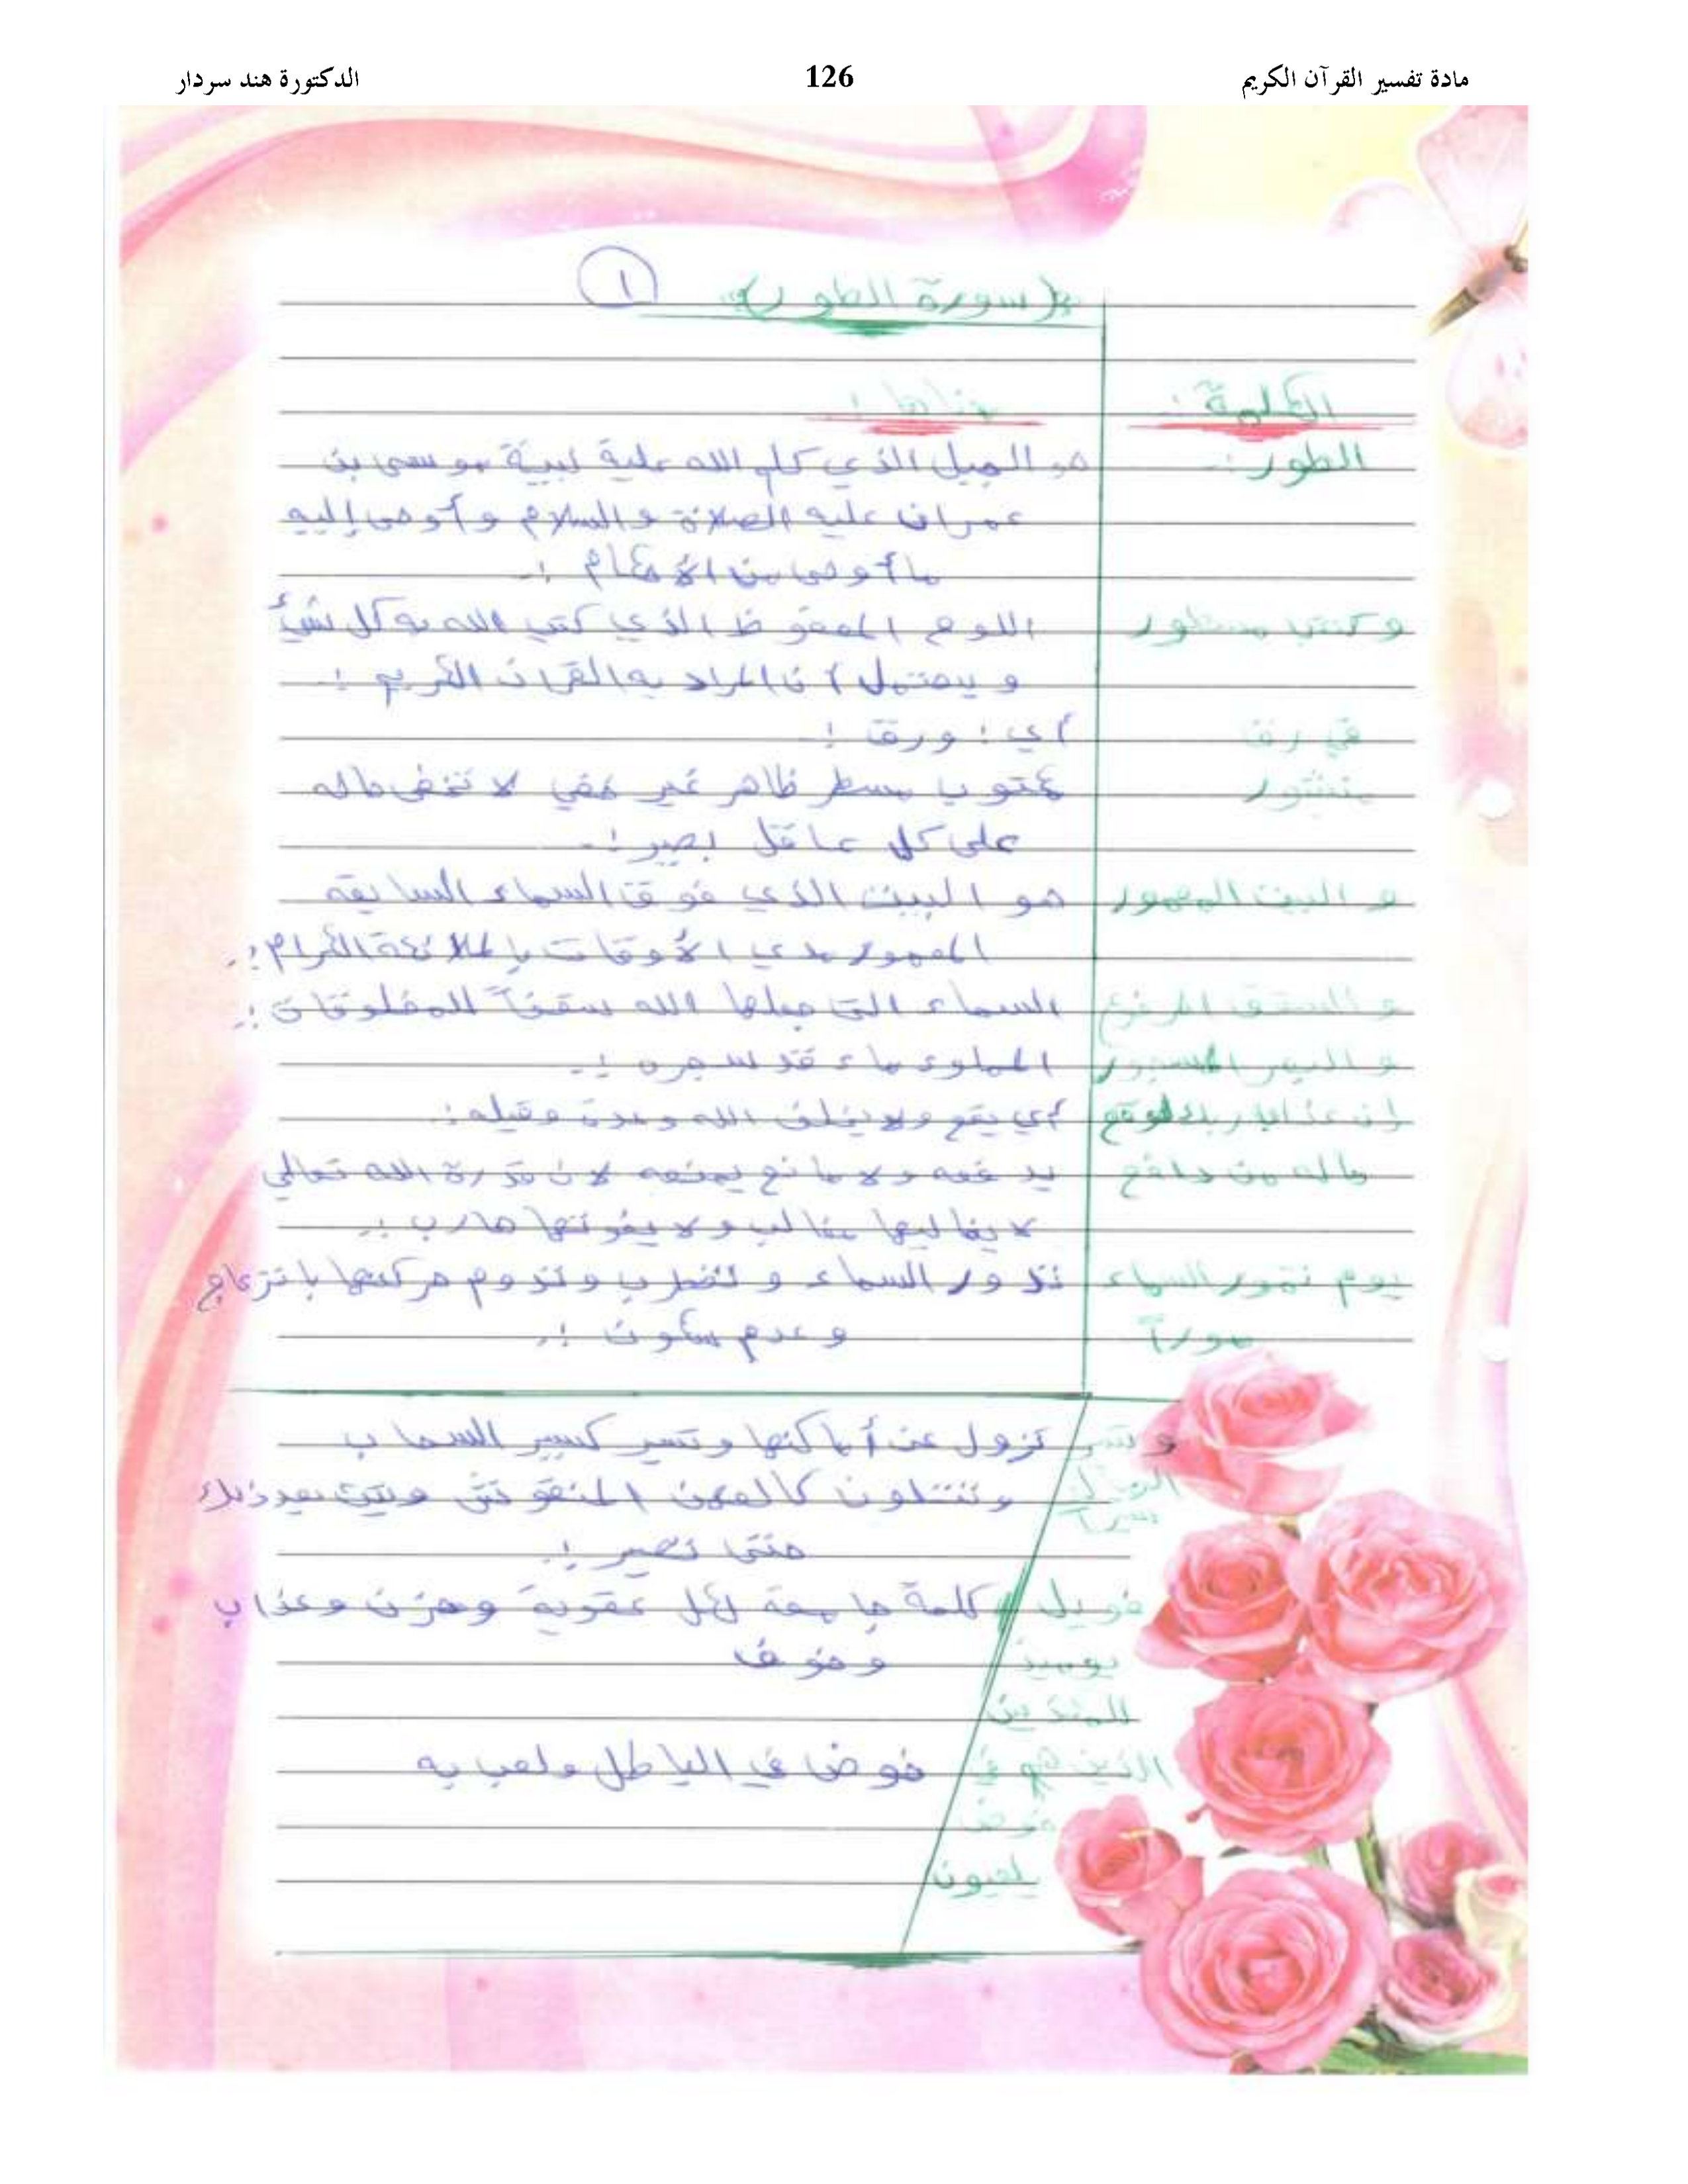 مادة تفسير القرآن الكريم 126 الدكتورة هند سردار
(سورة الطور) ١
الكلمة : معناها :
الطور :- هو الجبل الذي كلم الله علية نبية موسى بن
عمران عليه الصلاة والسلام وأوحى إليه
ما أوحى من الأحكام :-
وكتب مسطور اللوح المحفوظ الذي كتب الله به كل شئ
و يحتمل أن المراد به القران الكريم :-
في رق أي : ورق :
منشور مكتوب مسطر ظاهر غير خفي لا تخفى حاله
على كل عاقل بصير :-
و البيت المعمور هو البيت الذي فوق السماء السابعة
المعمور مدي الأوقات بالملائكة الكرام :-
و السقف المرفوع السماء التي جعلها الله سقفاً للمخلوقات :-
و البحر المسجور المملوء ماء قد سجره :-
إن عذاب ربك لوقع أي يقع ولا يخلف الله وعدة وقيله :
ماله من دافع يدفعه ولا مانع يمنعه لان قدرة الله تعالي
لا يغالبها مغالب ولا يفوتها هارب :-
يوم تمور السماء تدور السماء و تضطرب وتدوم حركتها بانزعاج
موراً وعدم سكون :-
و تسير تزول عن أماكنها وتسير كسير السحاب
الجبال وتتلون كالعهن المنفوش وتبث بعد ذلك
سيراً حتى تصير :-
فويل كلمة جامعة لكل عقوبة وحزن وعذاب
يوميذ وخوف
للمكذبين
الذين هم في خوض في الباطل ولعب به
خوض
يلعبون